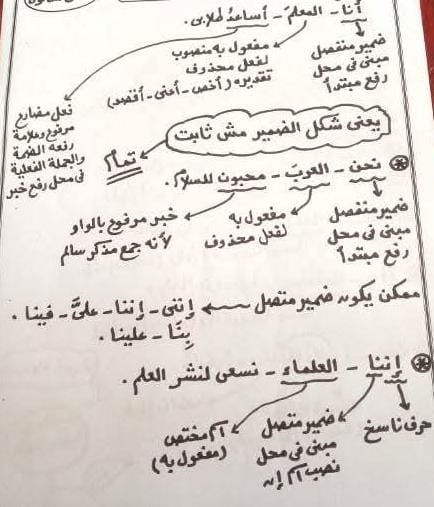 أنا - المعلمَ - أساعدُ طلابى.
ضمير منفصل مبنى فى محل رفع مبتدأ
مفعول به منصوب لفعل محذوف تقديره (أخص - أعنى - أقصد)
فعل مضارع مرفوع وعلامة رفعه الضمة والجملة الفعلية فى محل رفع خبر
يعنى شكل الضمير مش ثابت
تمام
نحن - العربَ - محبون للسلام.
ضمير منفصل مبنى فى محل رفع مبتدأ
مفعول به لفعل محذوف
خبر مرفوع بالواو لأنه جمع مذكر سالم
ممكن يكون ضمير متصل ← إننى - إننا - علىَّ - فينا.
بِنَا - علينا.
إننا - العلماء - نسعى لنشر العلم.
حرف ناسخ
ضمير متصل مبنى فى محل نصب اسم إن
اسم مختص (مفعول به)